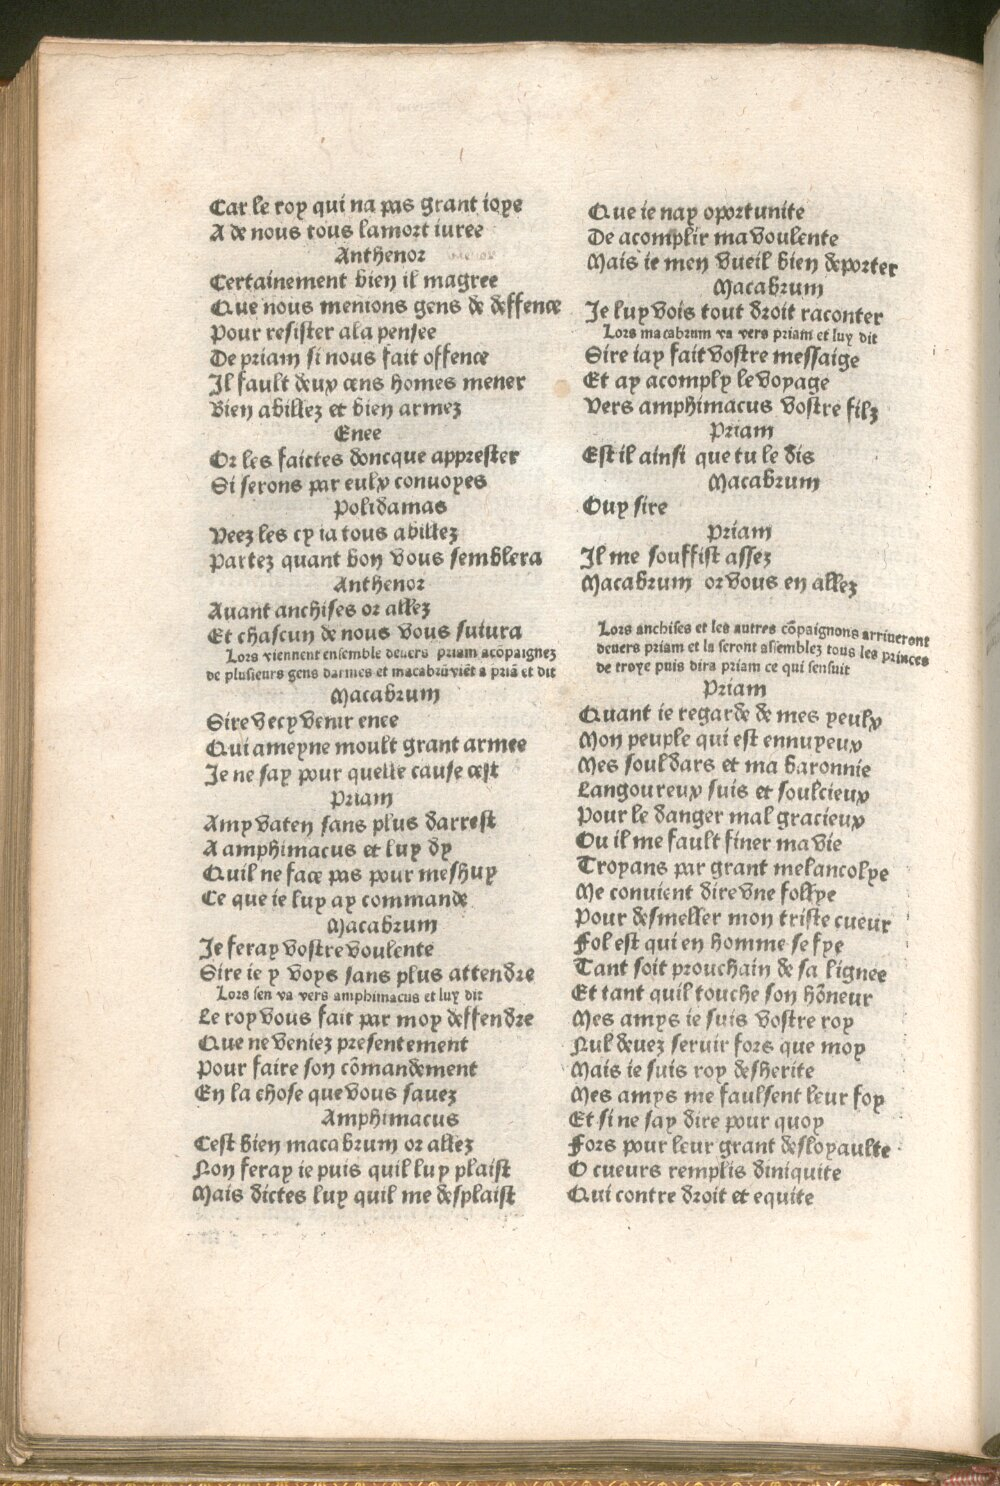 Car le roy qui na pas grant ioye
A de nous tous lamort iuree
Anthenor
Certainement bien il magree
Que nous menions gens de deffence
Pour resister ala pensee
De priam si nous fait offence
Il fault deux cens homes mener
Bien abillez et bien armez
Enee
Or les faictes doncque apprester
Si serons par eulx conuoyes
Polidamas
Veez les cy ia tous abillez
Partez quant bon vous semblera
Anthenor
Auant anchises or allez
Et chascun de nous vous suiura
Lors viennent ensemble deuers priam acõpaignez
de plusieurs gens darmes et macabrũ viẽt a priã et dit
Macabrum
Sire vecy venir enee
Qui ameyne moult grant armee
Je ne say pour quelle cause cest
Priam
Amy vaten sans plus darrest
A amphimacus et luy dy
Quil ne face pas pour meshuy
Ce que ie luy ay commande
Macabrum
Je feray vostre voulente
Sire ie y voys sans plus attendre
Lors sen va vers amphimacus et luy dit
Le roy vous fait par moy deffendre
Que ne veniez presentement
Pour faire son cõmandement
En la chose que vous sauez
Amphimacus
Cest bien macabrum or allez
Non feray ie puis quil luy plaist
Mais dictes luy quil me desplaist
Que ie nay oportunite
De acomplir ma voulente
Mais ie men vueil bien deporter
Macabrum
Je luy vois tout droit raconter
Lors macabrum va vers priam et luy dit
Sire iay fait vostre messaige
Et ay acomply le voyage
Vers amphimacus vostre filz
Priam
Est il ainsi que tu le dis
Macabrum
Ouy sire
Priam
Il me souffist assez
Macabrum or vous en allez
Lors anchises et les autres cõpaignons arriueront
deuers priam et la seront assemblez tous les princes
de troye puis dira priam ce qui sensuit
Priam
Quant ie regarde de mes yeulx
Mon peuple qui est ennuyeux
Mes souldars et ma baronnie
Langoureux suis et soulcieux
Pour le danger mal gracieux
Ou il me fault finer ma vie
Troyans par grant melancolye
Me conuient dire vne follye
Pour desmeller mon triste cueur
Fol est qui en homme se fye
Tant soit prouchain de sa lignee
Et tant quil touche son hõneur
Mes amys ie suis vostre roy
Nul deuez seruir fors que moy
Mais ie suis roy desherite
Mes amys me faulsent leur foy
Et si ne say dire pour quoy
Fors pour leur grant desloyaulte
O cueurs remplis diniquite
Qui contre droit et equite